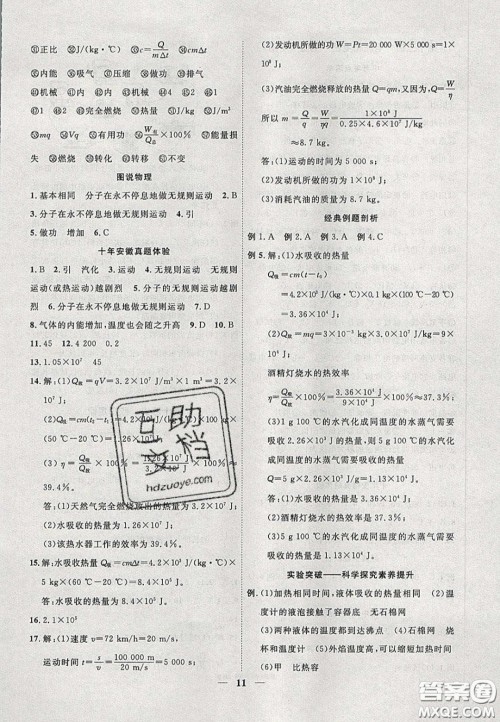 ㉛正比 ㉜J/(kg·℃) ㉝c=Q/(mΔt) ㉞Q/(mΔt)
㉟内能 ㊱吸气 ㊲压缩 ㊳做功 ㊴排气
㊵化学 ㊶完全燃烧 ㊷热量 ㊸J/kg ㊹J/m³
㊺mq ㊻Vq ㊼有用功 ㊽ ×100% ㊾能量损
失 ㊿燃烧 转化 转移 不变
图说物理
1.基本相同 分子在永不停息地做无规则运动 2.B
3.分子在永不停息地做无规则运动 4.引力
5.做功 增加 6.C
十年安徽真题体验
1.B 2.引 汽化 3.无规则运动 无规则运
动(或热运动)越剧烈 4.无规则运动越剧烈
5.引 6.分子在永不停息地做无规则运动 7.D
8.气体的内能增加,温度也会随之升高 9.D 10.B
11.45 12.4 200 0.2
13.1.05×10⁷ 45
14.解:(1)Q放=qV=3.2×10⁷ J/m³×1 m³=
3.2×10⁷ J;
(2)Q吸=cm(t-t₀)=4.2×10³ J/(kg·℃)×
(50 ℃-20 ℃)= ×10⁷ J;
(3)η= ×100%= ×100%≈
39.4%。
答:(1)天然气完全燃烧放出的热量为3.2×10⁷ J;
(2)水吸收的热量为1.26×10⁷ J;
(3)该热水器工作的效率为39.4%。
15.解:水吸收热量Q吸=cm(t-t₀)=4.2×10³ J/
(kg·℃) (50 ℃-20 ℃)=1.26×10⁵ J。
答:水吸收的热量是1.26×10⁵ J。
16.解:(1)速度v=72 km/h=20 m/s,
运动时间t=s/v= m/(20 m/s)=5 000 s;
(2)发动机所做的功W=Pt=20 000 W×5 000 s=
1×10⁸ J;
(3)汽油完全燃烧释放的热量Q=qm,又因为,Q=W/η
所以m=Q/q=W/(ηq)=(1×10⁸ J)/(0.25×4.6×10⁷ J/kg)
≈8.7 kg。
答:(1)运动的时间为5 000 s;
(2)发动机所做的功为1×10⁸ J;
(3)消耗汽油的质量为8.7 kg。
经典例题剖析
例1.A 例2.A 例3.A 例4.C
例5.解:(1)水吸收的热量
Q吸=cm(t-t₀)
=4.2×10³ J/(kg·℃)×0.1 kg×(100 ℃-
20 ℃)=3.36×10⁴ J;
(2)Q放=mq=3×10⁻³ kg×3.2×10⁷ J/kg=
9.6×10⁴ J;
酒精灯烧水的热效率
η=Q吸/Q放=(3.36×10⁴ J)/(9×10⁴ J)×100%≈37.3%;
(3)1 g 100 ℃的水汽化成同温度的水蒸气需要
吸收2.26×10³ J的热量,则5 g 100 ℃的水汽
化成同温度的水蒸气需要吸收的热量
Q=5 g×2.26×10³ J/g=1.13×10⁴ J。
答:(1)水吸收的热量为3.36×10⁴ J;
(2)酒精灯烧水的热效率为37.3%;
(3)5 g 100 ℃的水汽化成同温度的水蒸气需要
吸收的热量为1.13×10⁴ J。
实验突破——科学探究素养提升
例.(1)加热相同时间,液体吸收的热量相同 (2)温
度计的液泡接触了容器底 无石棉网
(3)两种液体的温度都达到沸点 (4)石棉网 烧
杯和温度计 (5)外焰温度高,充分利用酒精灯
(6)甲 比热容
11
互助文档
hdzuoye.com
答案圈
MXQE.COM